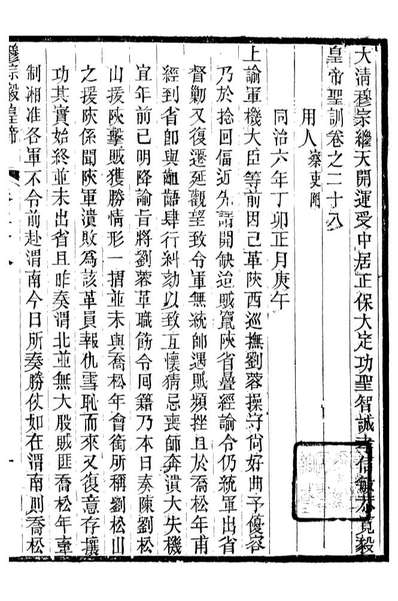 大清穆宗繼天開運受中居正保大定功聖智誠孝信敏恭寬毅
皇帝聖訓卷之二十八
用人 察吏附
同治六年丁卯正月庚午
上諭軍機大臣等前因已革陝西巡撫劉蓉操守尚好曲予優容
乃於捻回偪近先請開缺迨賊竄陝省疊經諭令仍統軍出省
督勦又復遷延觀望致令軍無統帥遇賊頻挫且於喬松年甫
經到省卽與齟齬肆行糾劾以致互懷猜忌喪師奔潰大失機
宜年前已明降諭旨將劉蓉革職飭令囘籍乃本日奏陳劉松
山援陝擊賊獲勝情形一摺並未與喬松年會銜所稱劉松山
之援陝係聞陝軍潰敗為該革員報仇雪恥而來又復意存攘
功其實始終並未出省且昨奏渭北並無大股賊匪喬松年牽
制湘淮各軍不令前赴渭南今日所奏勝仗如在渭南則喬松
穆宗毅皇帝